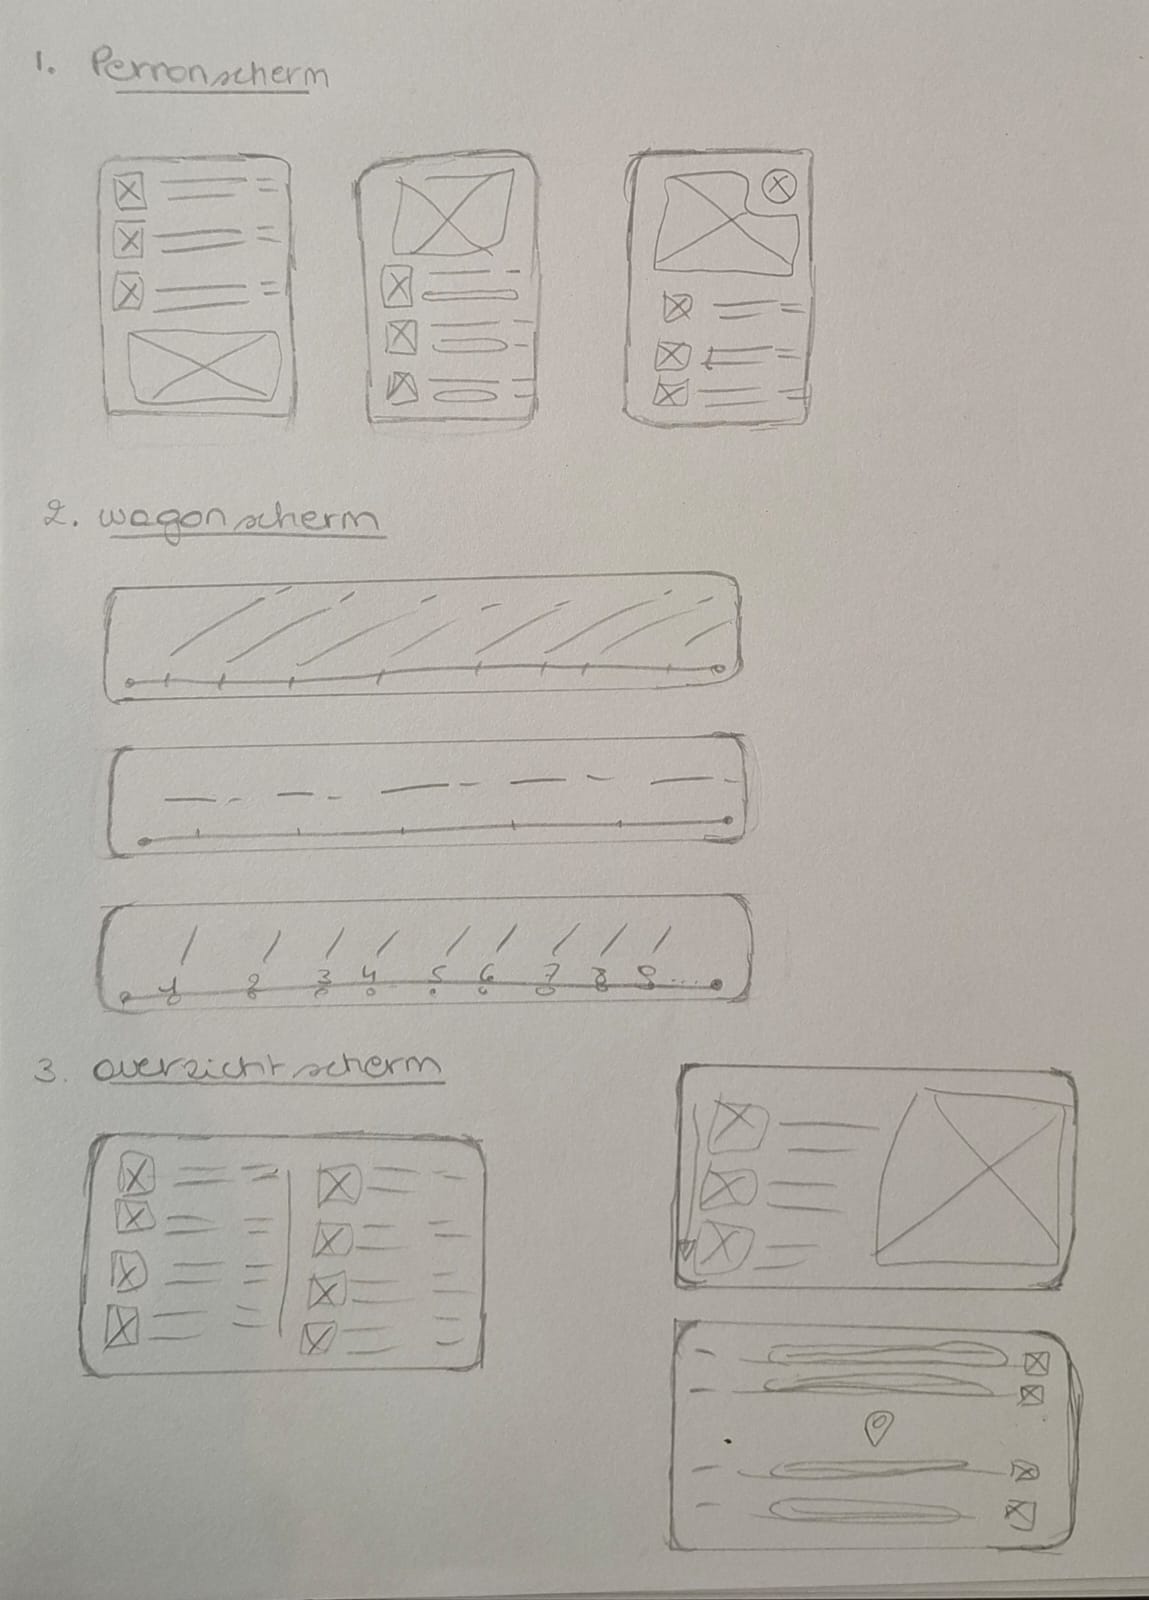 1. Perronscherm
2. wagonscherm
1 2 3 4 5 6 7 8 9 ...
3. overzichtscherm